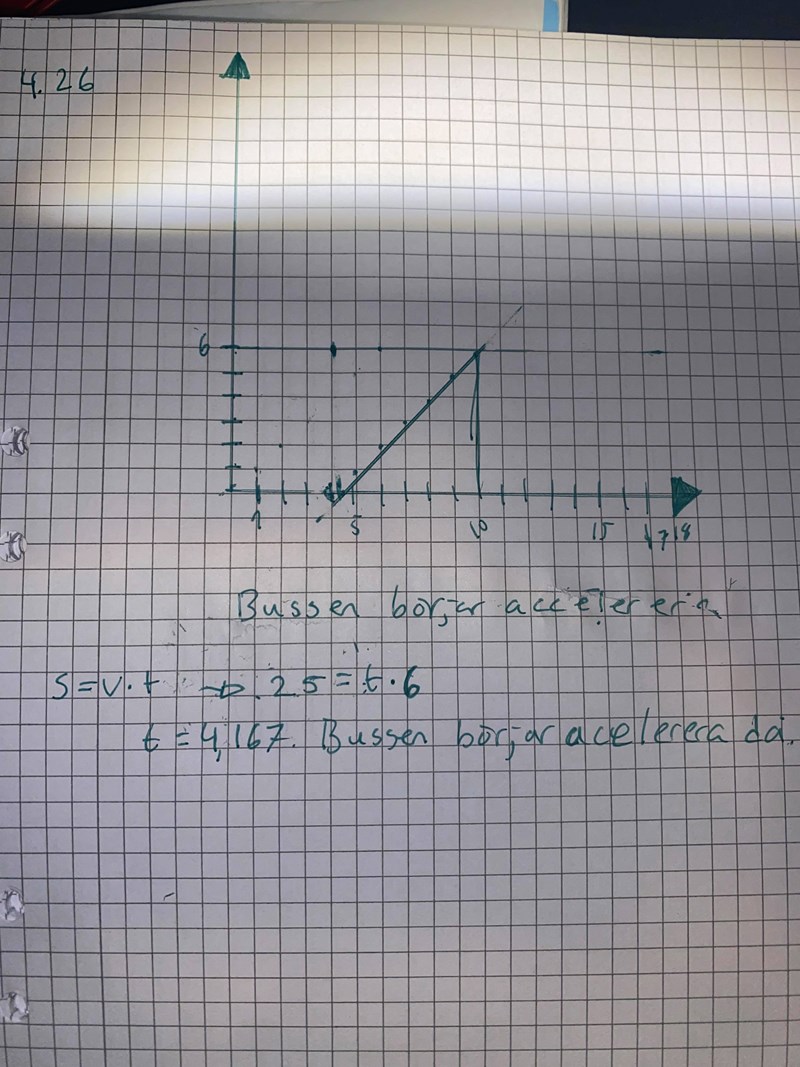 4.26
6
1 5 10 15 17 18
Bussen börjar accelerera
S = v · t → 25 = t · 6
t = 4,167. Bussen börjar acelerera då.